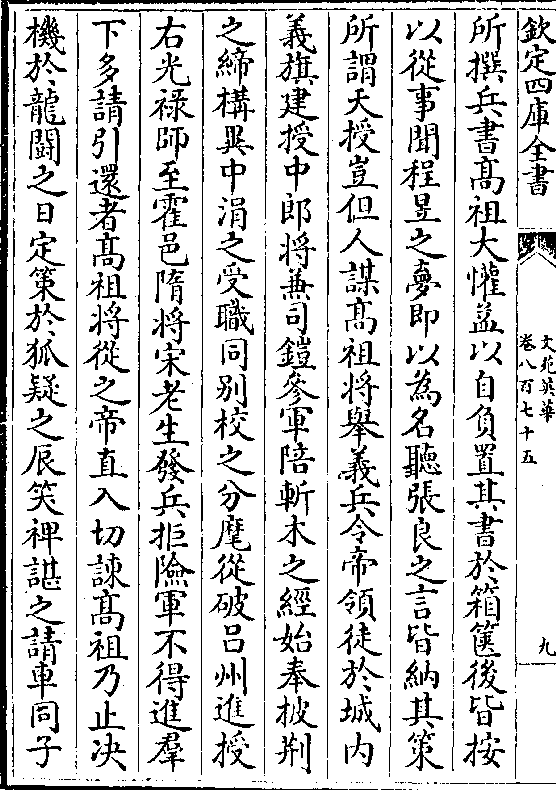 欽定四庫全書
文苑英華
卷八百七十五
九
所撰兵書髙祖大懽益以自負置其書於箱篋後皆按
以從事聞程昱之夢即以為名聽張良之言皆納其策
所謂天授豈但人謀髙祖將舉義兵令帝領徒於城内
義旗建授中郎將兼司鎧參軍陪斬木之經始奉披荆
之締構異中涓之受職同别校之分麾從破吕州進授
右光禄師至霍邑隋將宋老生發兵拒險軍不得進羣
下多請引還者髙祖將從之帝直入切諫髙祖乃止決
機於龍鬭之日定策於狐疑之辰笑裨諶之請車同子